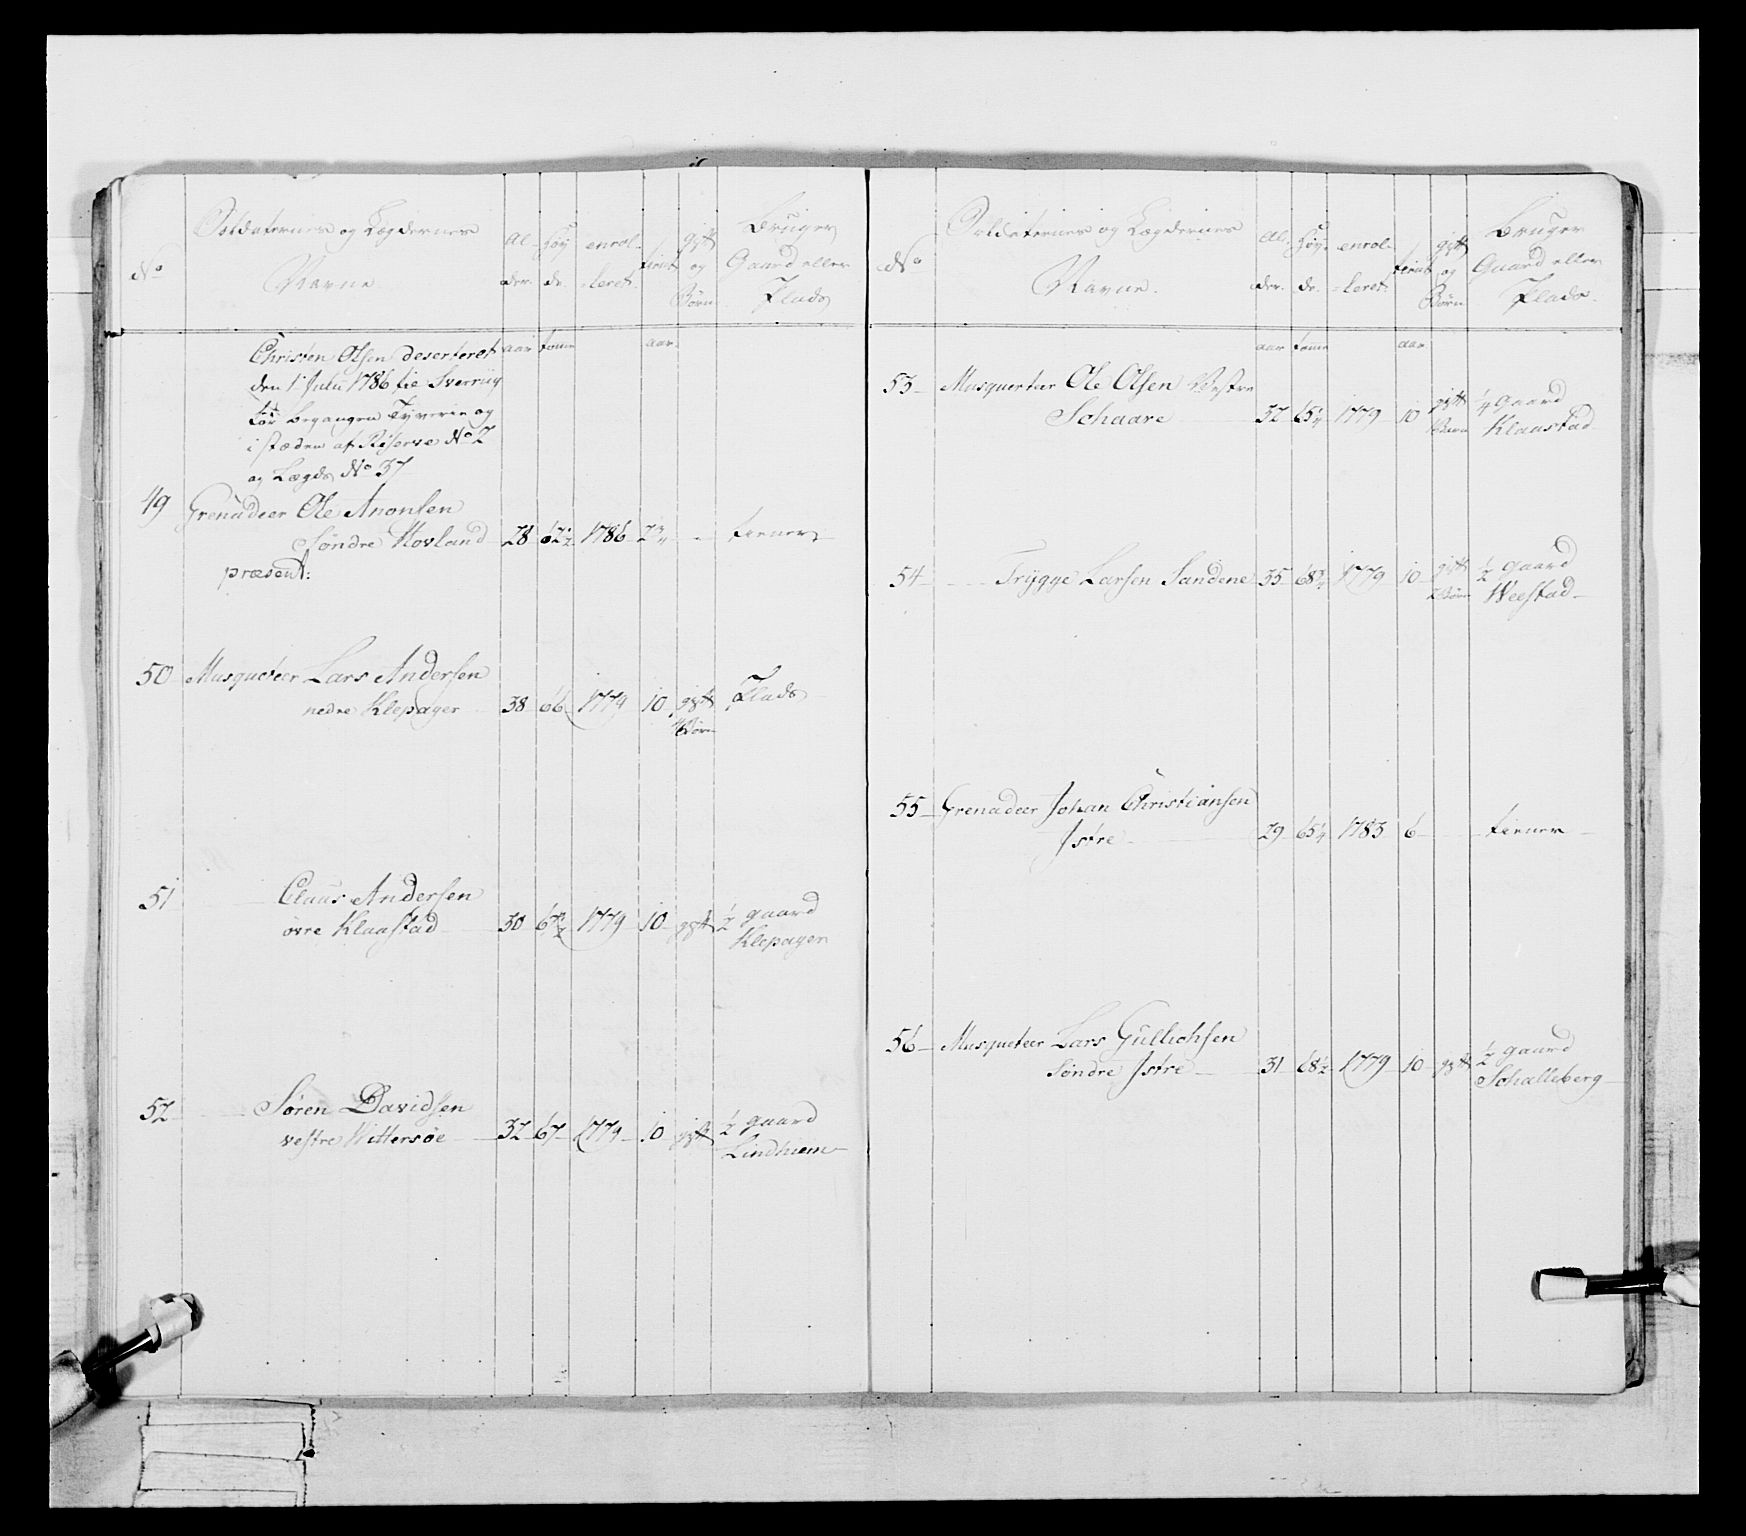 No Soldaternes og Lægdernes Navne Al-der. Høy-de. enrol-leret. tient gift og Børn Bruger Gaard eller Plads
aar tomr aar
Christen Olsen deserteret
den 1 Julii 1786 til Sverrig
for begangen Tyverie og
i stæden af Reserve No 2
og Lægds No 37
49 Grenadeer Ole Anonsen
Søndre Hovland 28 62½ 1786 2¾ - tiener
præsent:
50 Musqueteer Lars Andersen
nedre Klepager 38 66 1779 10 gift Plads
4 Børn
51 Claus Andersen
øvre Klaastad 30 67½ 1779 10 gift ½ gaard
Klepager
52 Søren Davidsen
vestre Wittersøe 32 67 1779 10 gift ½ gaard
Lindhiem
No Soldaternes og Lægdernes Navne. Al-der. Høy-de. enrol-leret. tient gift og Børn Bruger Gaard eller Plads.
aar tomr aar
53 Musqueteer Ole Olsen Vestre
Schaare 32 65¼ 1779 10 gift ¼ Gaard
Barn Klaastad
54 Trygge Larsen Sandene 35 68¾ 1779 10 gift ½ gaard
2 Børn Weestad
55 Grenadeer Johan Christiansen
Istre 29 65¼ 1783 6 tiener
56 Musqueteer Lars Gullichsen
Søndre Istre 31 68½ 1779 10 gift ½ gaard
Schalleberg